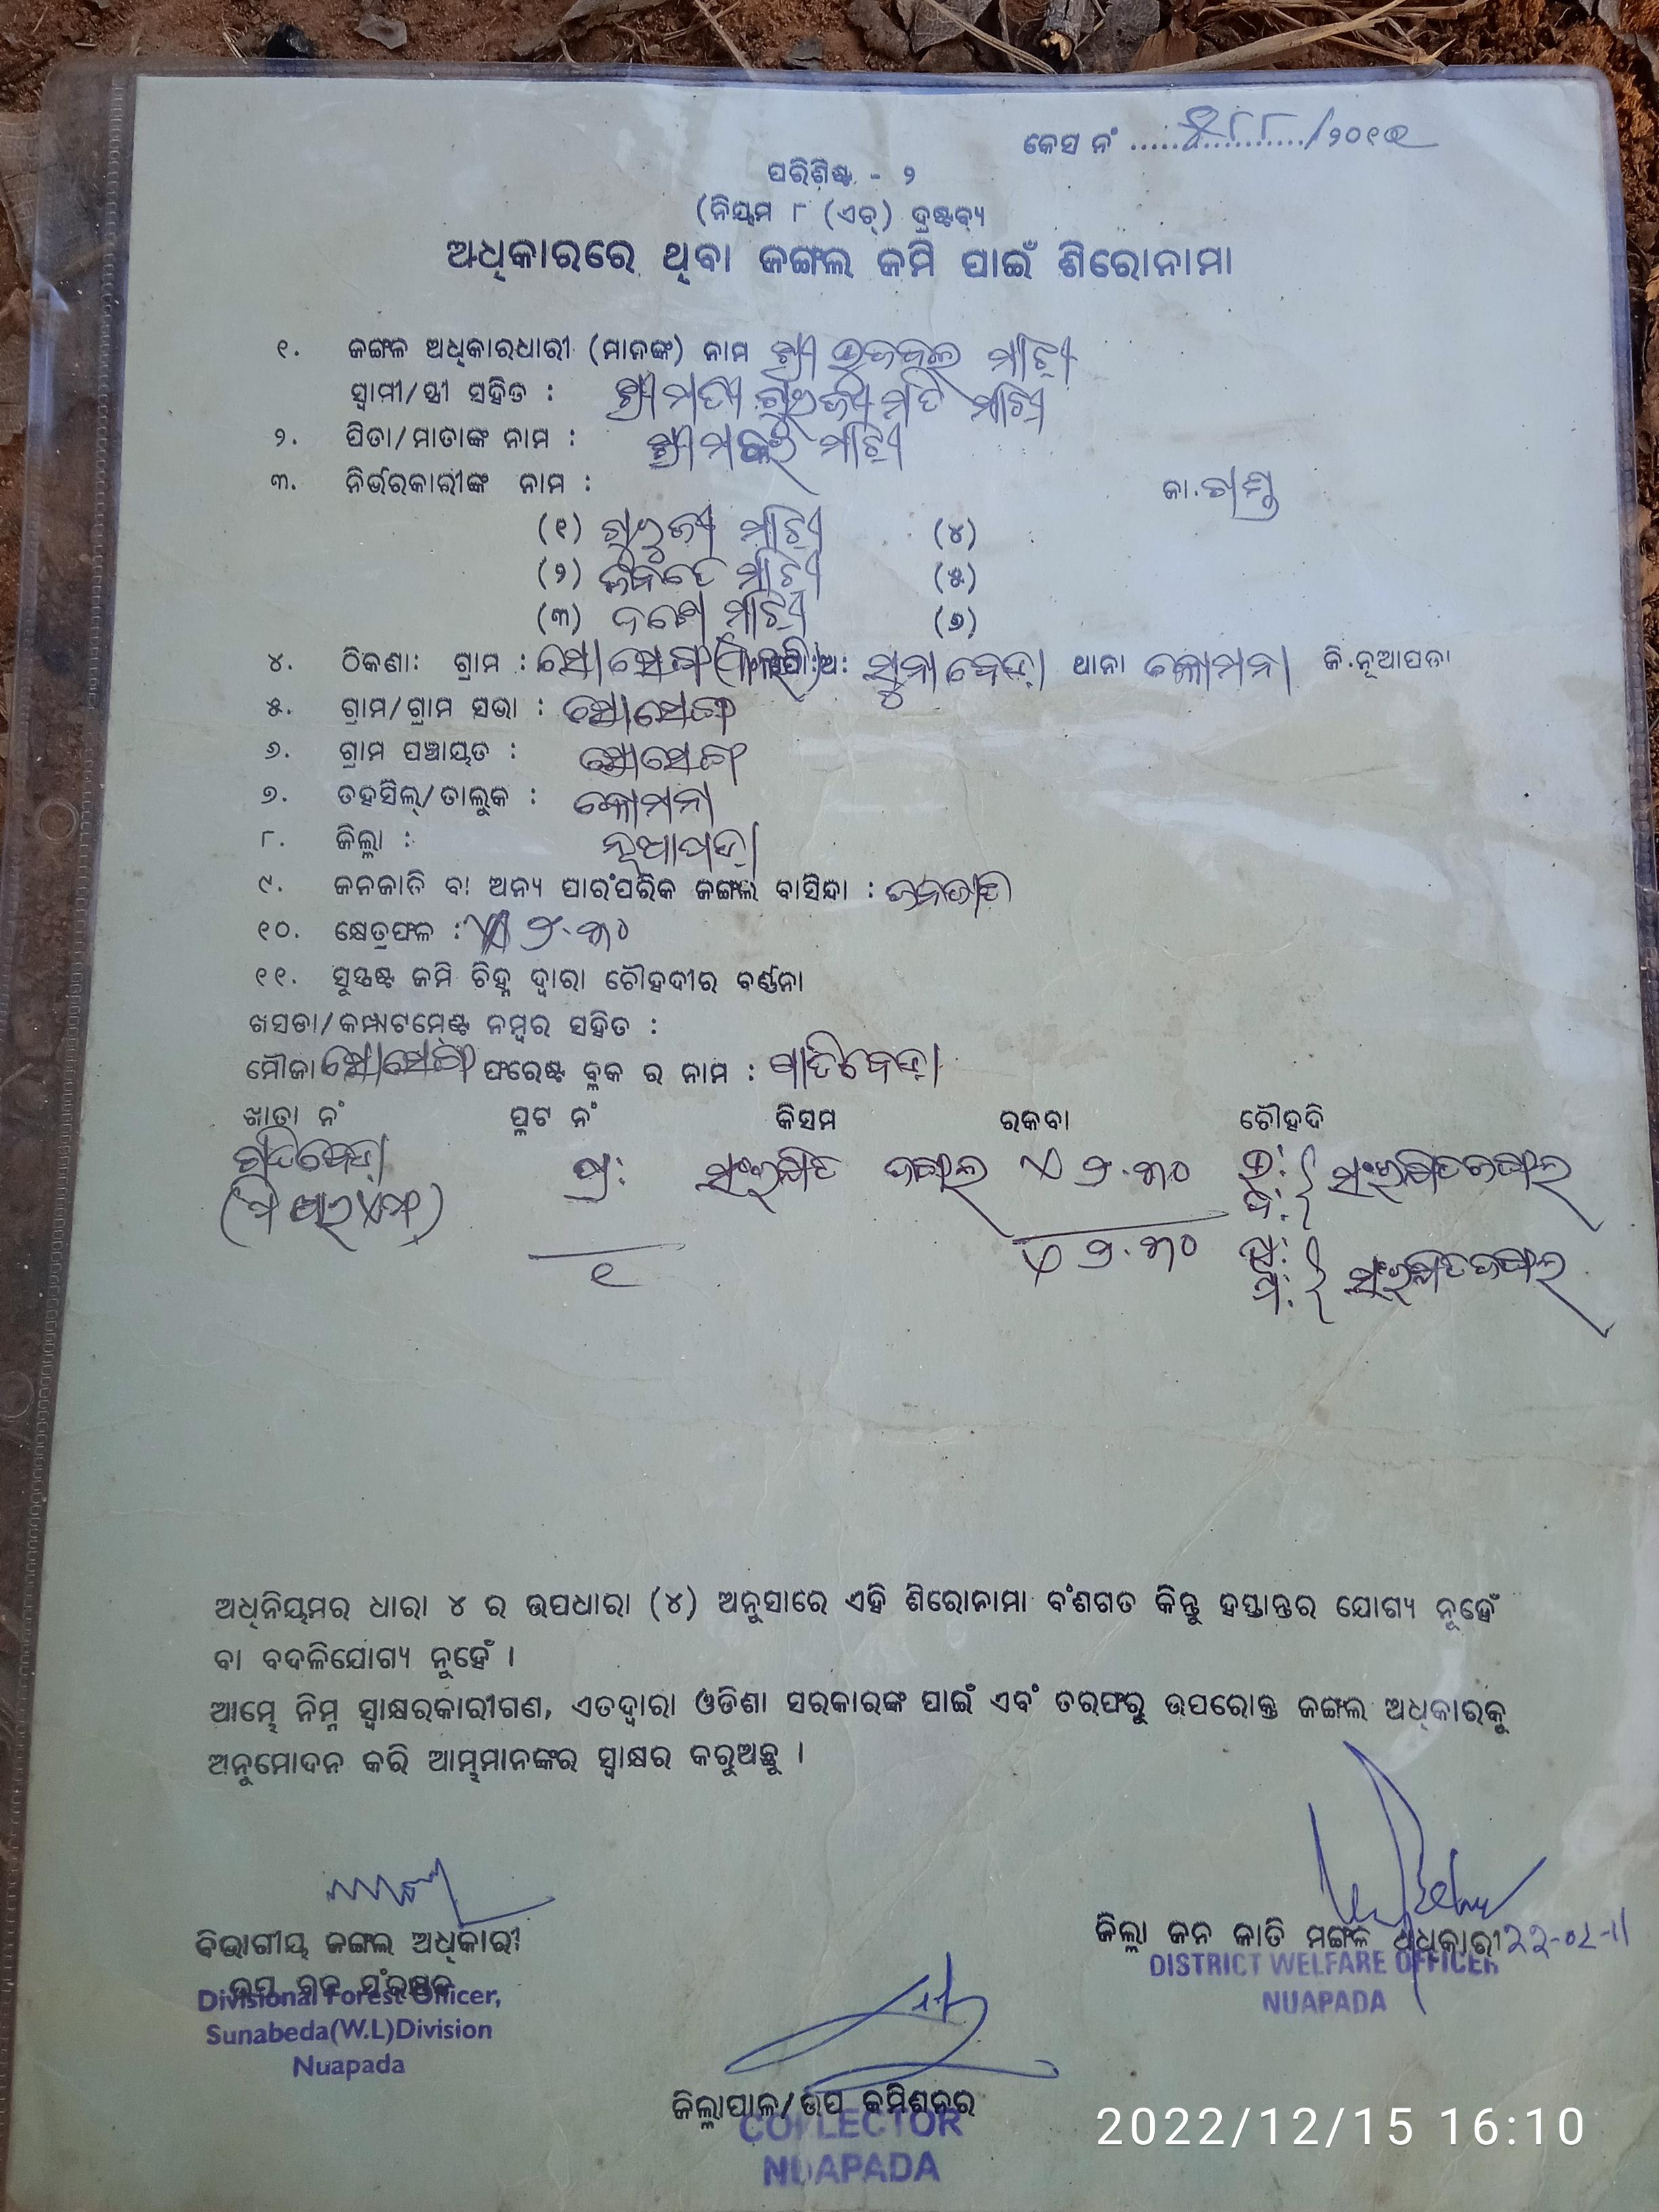 କେସ ନଂ ................../୨୦୧୧
ପରିଶିଷ୍ଟ - ୨
(ନିୟମ ୮ (ଏଚ୍) ଦ୍ରଷ୍ଟବ୍ୟ
ଅଧିକାରରେ ଥିବା ଜଙ୍ଗଲ ଜମି ପାଇଁ ଶିରୋନାମା
୧. ଜଙ୍ଗଳ ଅଧିକାରଧାରୀ (ମାନଙ୍କ) ନାମ ଶ୍ରୀ ମାଝି
ସ୍ୱାମୀ/ସ୍ତ୍ରୀ ସହିତ : ଶ୍ରୀମତୀ ମାଝି
୨. ପିତା/ମାତାଙ୍କ ନାମ : ମାଝି
୩. ନିର୍ଭରକାରୀଙ୍କ ନାମ : ଜା.
(୧) ମାଝି (୪)
(୨) ମାଝି (୫)
(୩) ମାଝି (୬)
୪. ଠିକଣା: ଗ୍ରାମ : ସୋସେଙ୍ଗ ଅ: ସୁନାବେଡ଼ା ଥାନା କୋମନା ଜି.ନୂଆପଡା
୫. ଗ୍ରାମ/ଗ୍ରାମ ସଭା : ସୋସେଙ୍ଗ
୬. ଗ୍ରାମ ପଞ୍ଚାୟତ : ସୋସେଙ୍ଗ
୭. ତହସିଲ୍/ତାଲୁକ : କୋମନା
୮. ଜିଲ୍ଲା : ନୂଆପଡ଼ା
୯. ଜନଜାତି ବା ଅନ୍ୟ ପାରଂପରିକ ଜଙ୍ଗଲ ବାସିନ୍ଦା : ଜନଜାତି
୧୦. କ୍ଷେତ୍ରଫଳ : ୨.୩୦
୧୧. ସୁସ୍ପଷ୍ଟ ଜମି ଚିହ୍ନ ଦ୍ୱାରା ଚୌହଦୀର ବର୍ଣ୍ଣନା
ଖସଡା/କମ୍ପାଟମେଣ୍ଟ ନମ୍ବର ସହିତ :
ମୌଜା ସୋସେଙ୍ଗ ଫରେଷ୍ଟ ବ୍ଲକ ର ନାମ : ପାତିବେଡ଼ା
ଖାତା ନଂ ପ୍ଳଟ ନଂ କିସମ ରକବା ଚୌହଦି
ପାତିବେଡ଼ା ପ୍ର: ସଂରକ୍ଷିତ ଜଙ୍ଗଲ ୨.୩୦ ଉ: ସଂରକ୍ଷିତ ଜଙ୍ଗଲ
ଦ:
୧ ୨.୩୦ ପୂ: ସଂରକ୍ଷିତ ଜଙ୍ଗଲ
ପ:
ଅଧିନିୟମର ଧାରା ୪ ର ଉପଧାରା (୪) ଅନୁସାରେ ଏହି ଶିରୋନାମା ବଂଶଗତ କିନ୍ତୁ ହସ୍ତାନ୍ତର ଯୋଗ୍ୟ ନୁହେଁ
ବା ବଦଳିଯୋଗ୍ୟ ନୁହେଁ ।
ଆମ୍ଭେ ନିମ୍ନ ସ୍ୱାକ୍ଷରକାରୀଗଣ, ଏତଦ୍ୱାରା ଓଡିଶା ସରକାରଙ୍କ ପାଇଁ ଏବଂ ତରଫରୁ ଉପରୋକ୍ତ ଜଙ୍ଗଲ ଅଧିକାରକୁ
ଅନୁମୋଦନ କରି ଆମ୍ଭମାନଙ୍କର ସ୍ୱାକ୍ଷର କରୁଅଛୁ ।
ବିଭାଗୀୟ ଜଙ୍ଗଲ ଅଧିକାରୀ
ଉପ ବନ ସଂରକ୍ଷକ
Divisional Forest Officer,
Sunabeda(W.L)Division
Nuapada
ଜିଲ୍ଲା ଜନ ଜାତି ମଙ୍ଗଳ ଅଧିକାରୀ
DISTRICT WELFARE OFFICER
NUAPADA
ଜିଲ୍ଲାପାଳ/ଉପ କମିଶନର
COLLECTOR
NUAPADA
2022/12/15 16:10